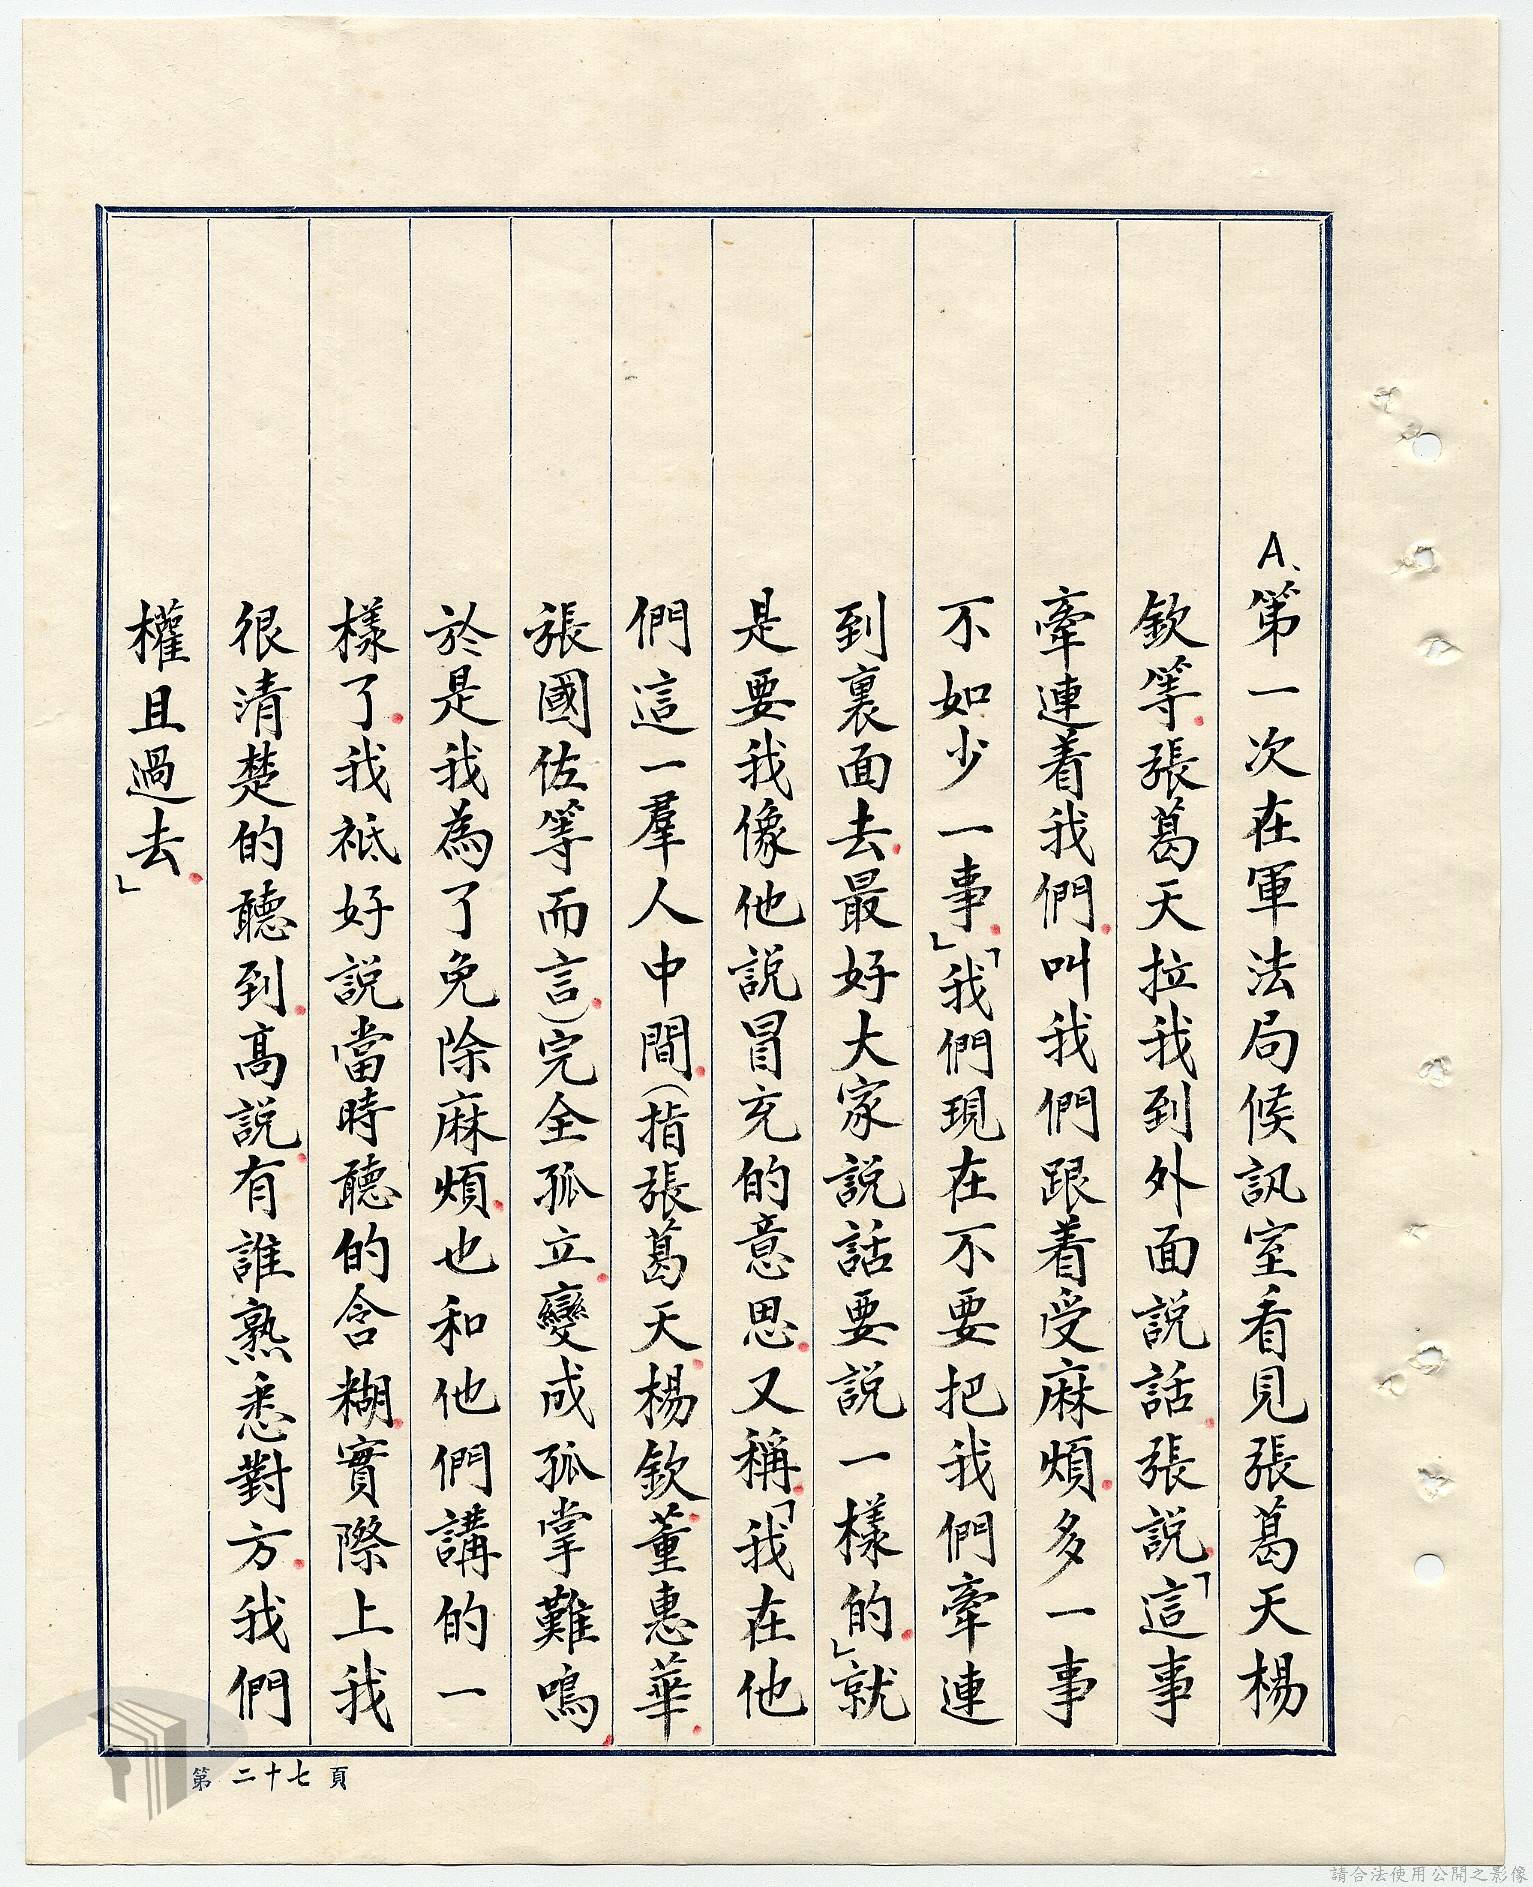 A、第一次在軍法局候訊室看見張葛天楊
欽等。張葛天拉我到外面説話。張説。「這事
牽連着我們。叫我們跟着受麻煩。多一事
不如少一事。」「我們現在不要把我們牽連
到裏面去。最好大家説話要説一樣的。」就
是要我像他説冒充的意思。又稱。「我在他
們這一羣人中間。（指張葛天。楊欽。董惠華。
張國佐等而言。）完全孤立。變成孤掌難鳴。
於是我為了免除麻煩。也和他們講的一
樣了。我祇好説當時聽的含糊。實際上我
很清楚的聽到。高説。有誰熟悉對方。我們
權且過去。」
第二十七頁
請合法使用公開之影像